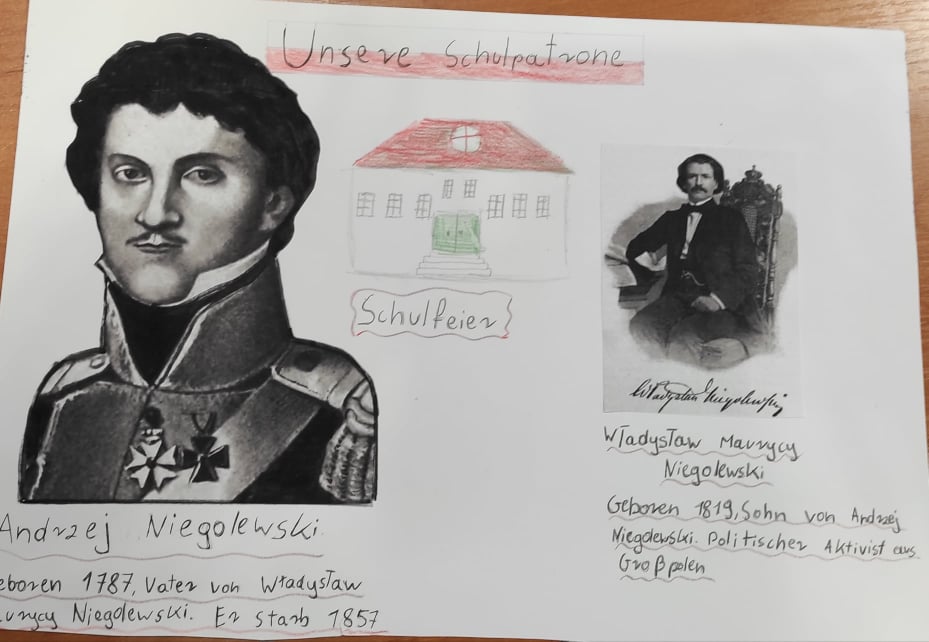 Unsere Schulpatrone
Schulfeier
Władysław Niegolewski
Andrzej Niegolewski.
eboren 1787, Vater von Władysław
urycy Niegolewski. Er starb 1857
Władysław Maurycy
Niegolewski
Geboren 1819, Sohn von Andrzej
Niegolewski. Politischer Aktivist aus
Großpolen